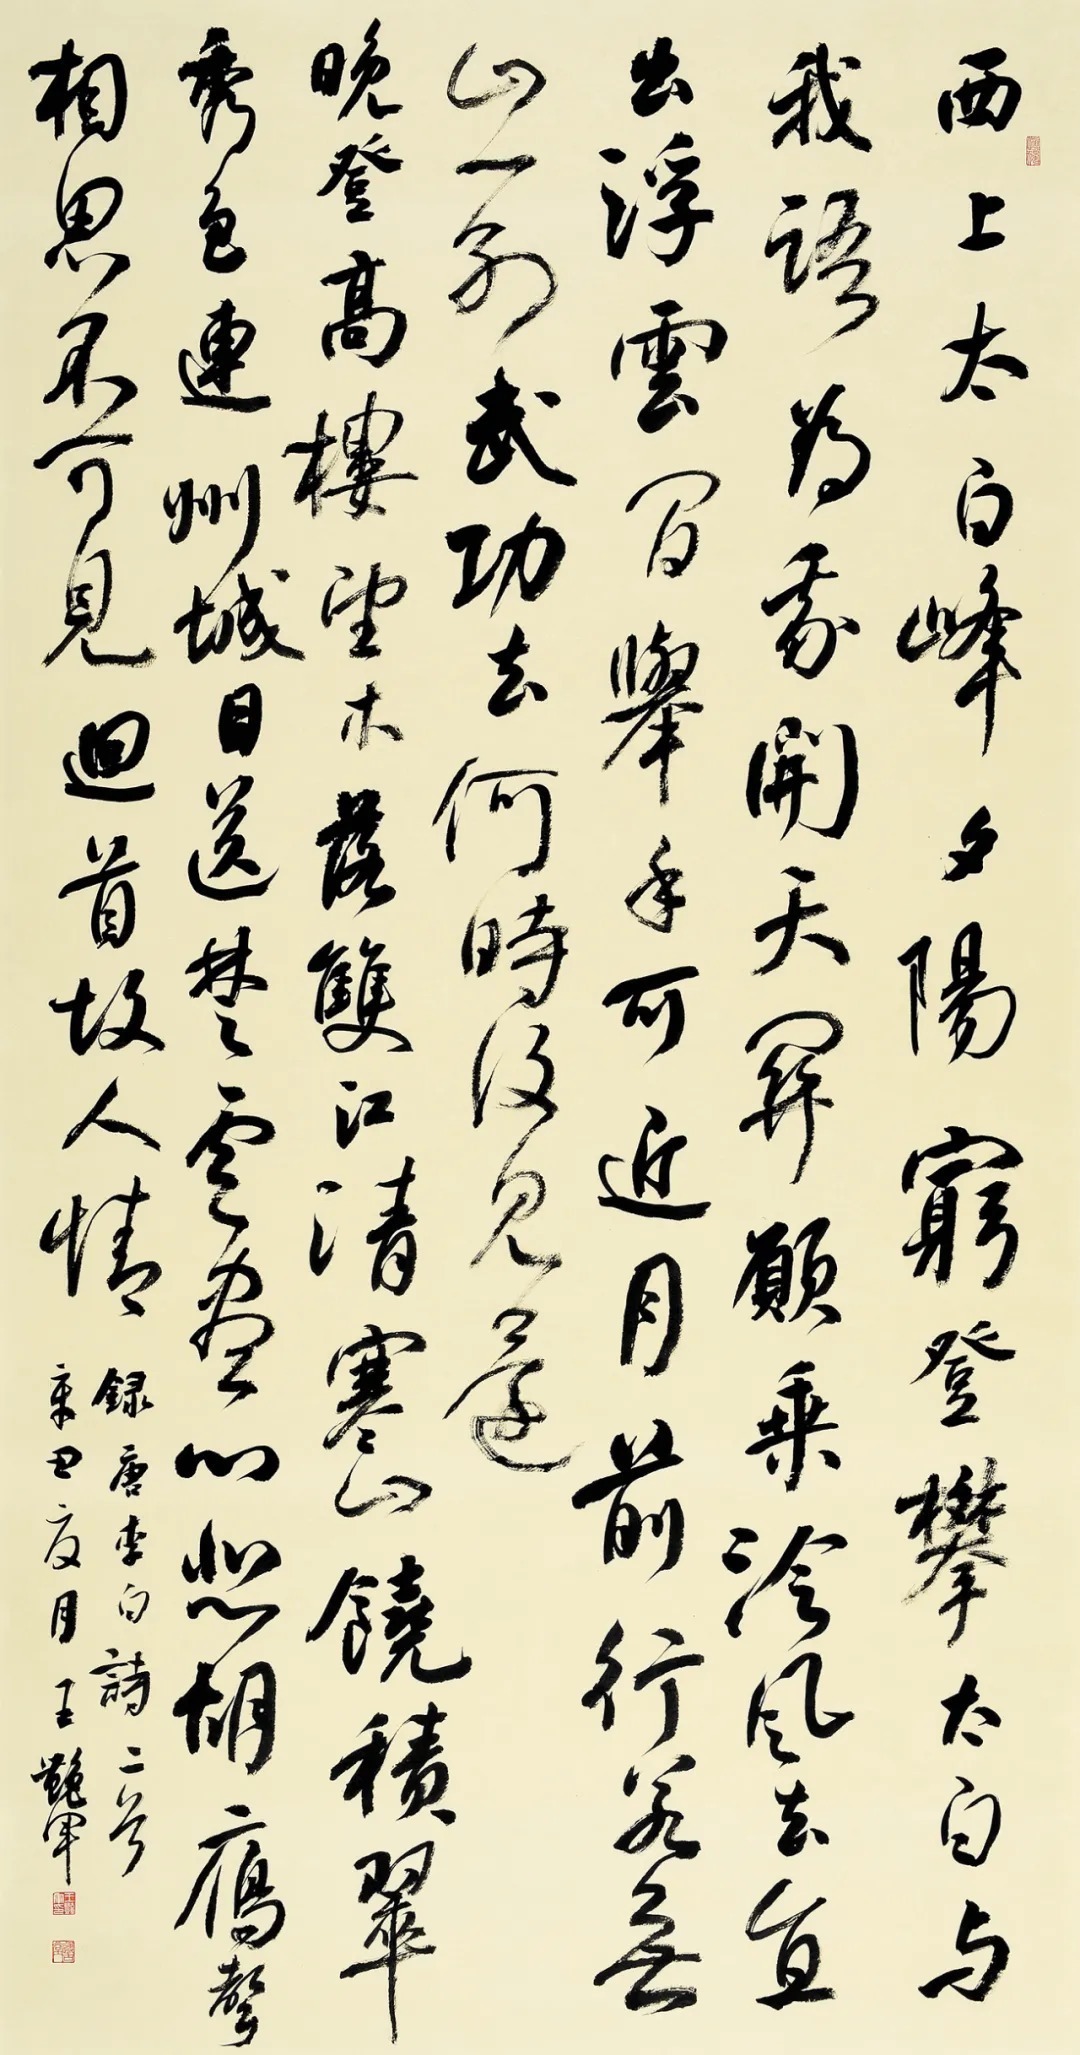 西上太白峰夕陽窮登攀太白与
我語为我開天関願乗泠风去直
出浮雲间舉手可近月前行若无
山一别武功去何時復见還
晚登高樓望木落雙江清寒山饒積翠
秀色連州城目送楚雲盡心悲胡鴈聲
相思不可見迴首故人情
録唐李白詩二首
辛丑夏月王艷军